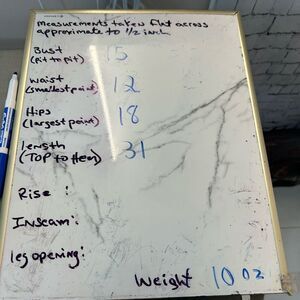 measurements taken flat across
approximate to 1/2 inch
Bust 15
(pit to pit)
waist 12
(smallest point)
Hips 18
(largest point)
length 31
(TOP to Hem)
Rise :
Inseam:
leg opening:
Weight 10 oz